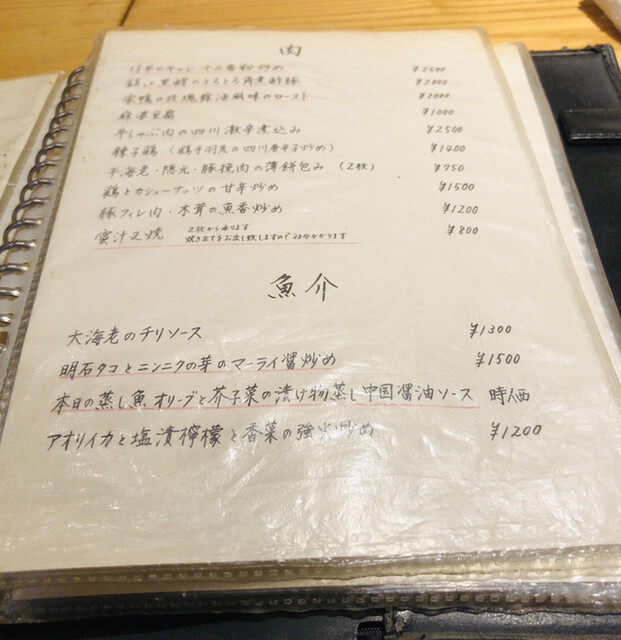 肉
仔羊のキャレ 十三香粉炒め ¥2500
黒酢のとろとろ角煮酢豚 ¥2000
家鴨の玫瑰醤油風味のロースト ¥2000
麻婆豆腐 ¥1000
牛しゃぶ肉の四川激辛煮込み ¥2500
辣子鶏 (鶏手羽先の四川唐辛子炒め) ¥1400
干海老・隠元・豚挽肉の薄餅包み (2枚) ¥750
鶏とカシューナッツの甘辛炒め ¥1500
豚フィレ肉・木茸の魚香炒め ¥1200
蜜汁叉焼 2枚から承ります ¥800
焼き立てをお出し致しますので20分かかります
魚介
大海老のチリソース ¥1300
明石タコとニンニクの芽のマーライ醤炒め ¥1500
本日の蒸し魚 オリーブと芥子菜の漬け物蒸し 中国醤油ソース 時価
アオリイカと塩漬檸檬と香菜の強火炒め ¥1200